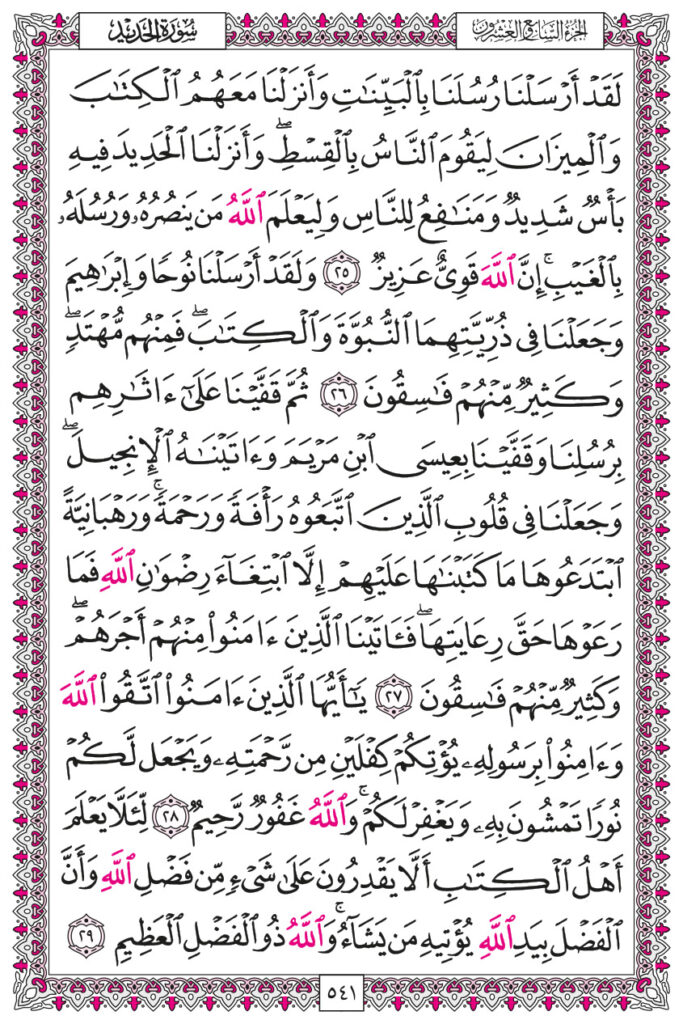 الجزء السابع العشرون
سورة الحديد
لَقَدْ أَرْسَلْنَا رُسُلَنَا بِٱلْبَيِّنَٰتِ وَأَنزَلْنَا مَعَهُمُ ٱلْكِتَٰبَ
وَٱلْمِيزَانَ لِيَقُومَ ٱلنَّاسُ بِٱلْقِسْطِۖ وَأَنزَلْنَا ٱلْحَدِيدَ فِيهِ
بَأْسٌ شَدِيدٌ وَمَنَٰفِعُ لِلنَّاسِ وَلِيَعْلَمَ ٱللَّهُ مَن يَنصُرُهُۥ وَرُسُلَهُۥ
بِٱلْغَيْبِۚ إِنَّ ٱللَّهَ قَوِىٌّ عَزِيزٌ ٢٥ وَلَقَدْ أَرْسَلْنَا نُوحًا وَإِبْرَٰهِيمَ
وَجَعَلْنَا فِى ذُرِّيَّتِهِمَا ٱلنُّبُوَّةَ وَٱلْكِتَٰبَۖ فَمِنْهُم مُّهْتَدٍۖ
وَكَثِيرٌ مِّنْهُمْ فَٰسِقُونَ ٢٦ ثُمَّ قَفَّيْنَا عَلَىٰٓ ءَاثَٰرِهِم
بِرُسُلِنَا وَقَفَّيْنَا بِعِيسَى ٱبْنِ مَرْيَمَ وَءَاتَيْنَٰهُ ٱلْإِنجِيلَۖ
وَجَعَلْنَا فِى قُلُوبِ ٱلَّذِينَ ٱتَّبَعُوهُ رَأْفَةً وَرَحْمَةًۚ وَرَهْبَانِيَّةً
ٱبْتَدَعُوهَا مَا كَتَبْنَٰهَا عَلَيْهِمْ إِلَّا ٱبْتِغَآءَ رِضْوَٰنِ ٱللَّهِ فَمَا
رَعَوْهَا حَقَّ رِعَايَتِهَاۖ فَـَٔاتَيْنَا ٱلَّذِينَ ءَامَنُوا۟ مِنْهُمْ أَجْرَهُمْۖ
وَكَثِيرٌ مِّنْهُمْ فَٰسِقُونَ ٢٧ يَٰٓأَيُّهَا ٱلَّذِينَ ءَامَنُوا۟ ٱتَّقُوا۟ ٱللَّهَ
وَءَامِنُوا۟ بِرَسُولِهِۦ يُؤْتِكُمْ كِفْلَيْنِ مِن رَّحْمَتِهِۦ وَيَجْعَل لَّكُمْ
نُورًا تَمْشُونَ بِهِۦ وَيَغْفِرْ لَكُمْۚ وَٱللَّهُ غَفُورٌ رَّحِيمٌ ٢٨ لِّئَلَّا يَعْلَمَ
أَهْلُ ٱلْكِتَٰبِ أَلَّا يَقْدِرُونَ عَلَىٰ شَىْءٍ مِّن فَضْلِ ٱللَّهِ وَأَنَّ
ٱلْفَضْلَ بِيَدِ ٱللَّهِ يُؤْتِيهِ مَن يَشَآءُۚ وَٱللَّهُ ذُو ٱلْفَضْلِ ٱلْعَظِيمِ ٢٩
٥٤١